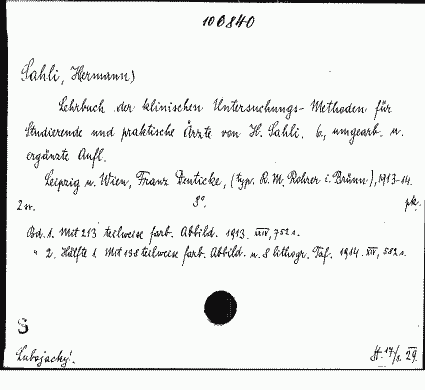 106840
Sahli, Hermann)
Lehrbuch der klinischen Untersuchungs-Methoden für
Studierende und praktische Ärzte von H. Sahli. 6., umgearb. u.
ergänzte Aufl.
Leipzig u. Wien, Franz Deuticke, (typ. R. M. Rohrer i. Brünn), 1913-14.
2 sv. 8°. pk.
Bd. 1. Mit 213 teilweise farb. Abbild. 1913. XXIV, 752 s.
" 2. Hälfte 1. Mit 138 teilweise farb. Abbild. u. 8 lithogr. Taf. 1914. XII, 582 s.
S
Lubojacký. H. 17/1. 29.